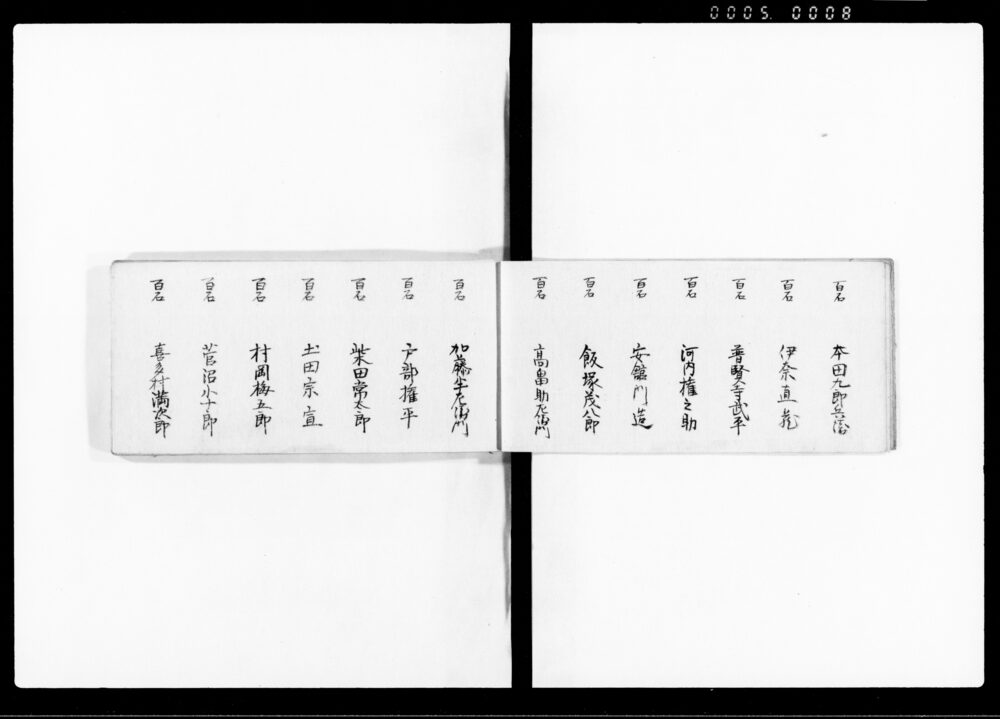 0005. 0008
百石 本田九郎兵衛
百石 伊奈直記
百石 普賢寺武平
百石 河内権之助
百石 安舘門造
百石 飯塚茂八郎
百石 高畠助左衛門
百石 加藤半左衛門
百石 戸部権平
百石 柴田常太郎
百石 土田宗宣
百石 村岡梅五郎
百石 菅沼小十郎
百石 喜多村満次郎